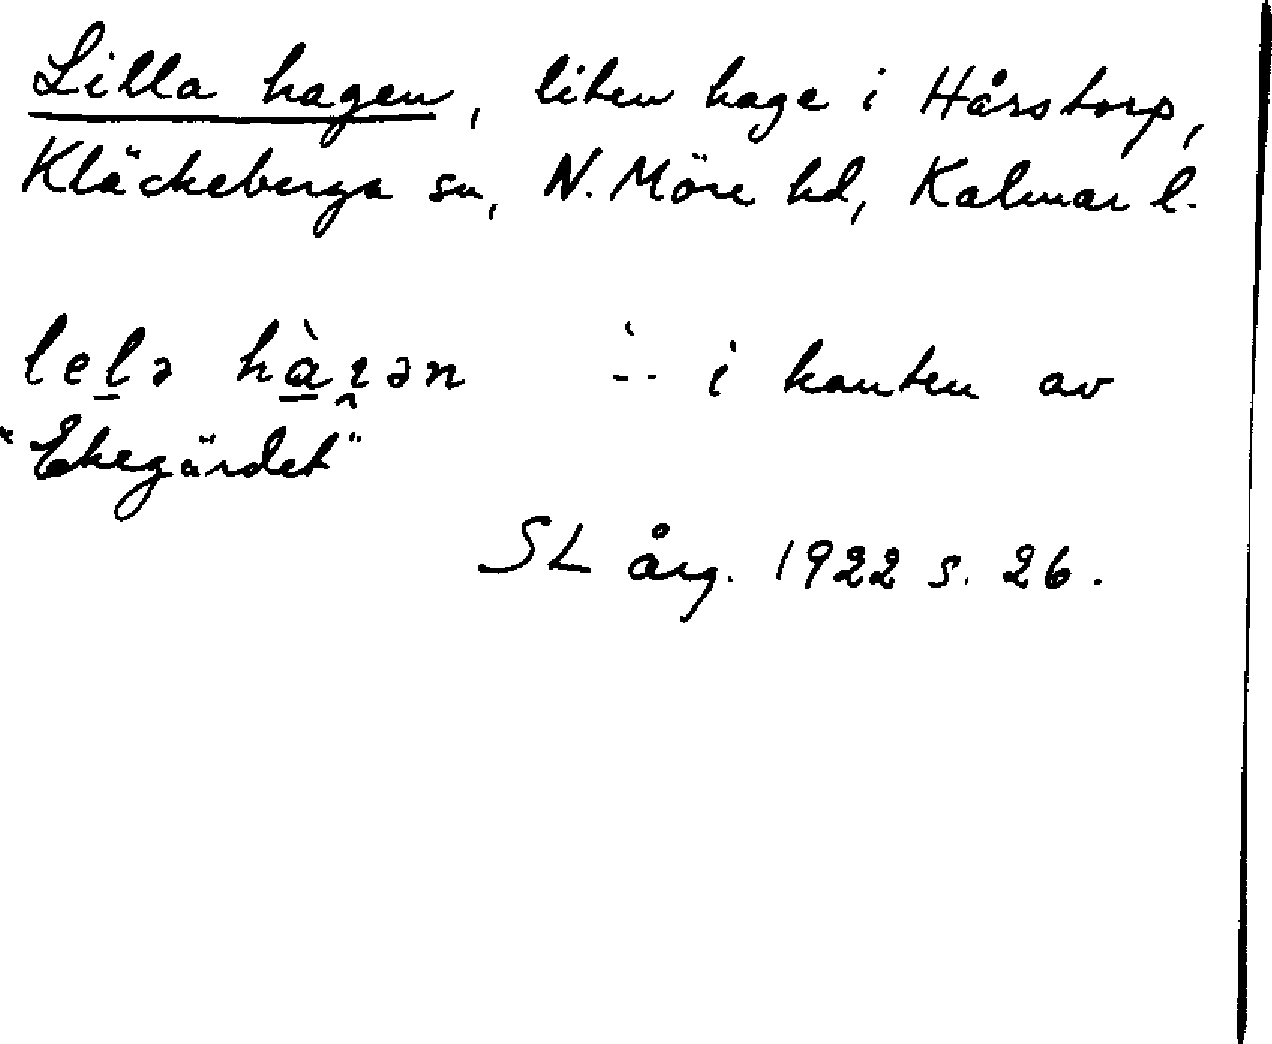 Lilla hagen, liten hage i Hårstorp,
Kläckeberga sn, N. Möre hd, Kalmar l.
lelə hàɡən -̀- i kanten av
"Ekegärdet"
SL årg. 1922 s. 26.